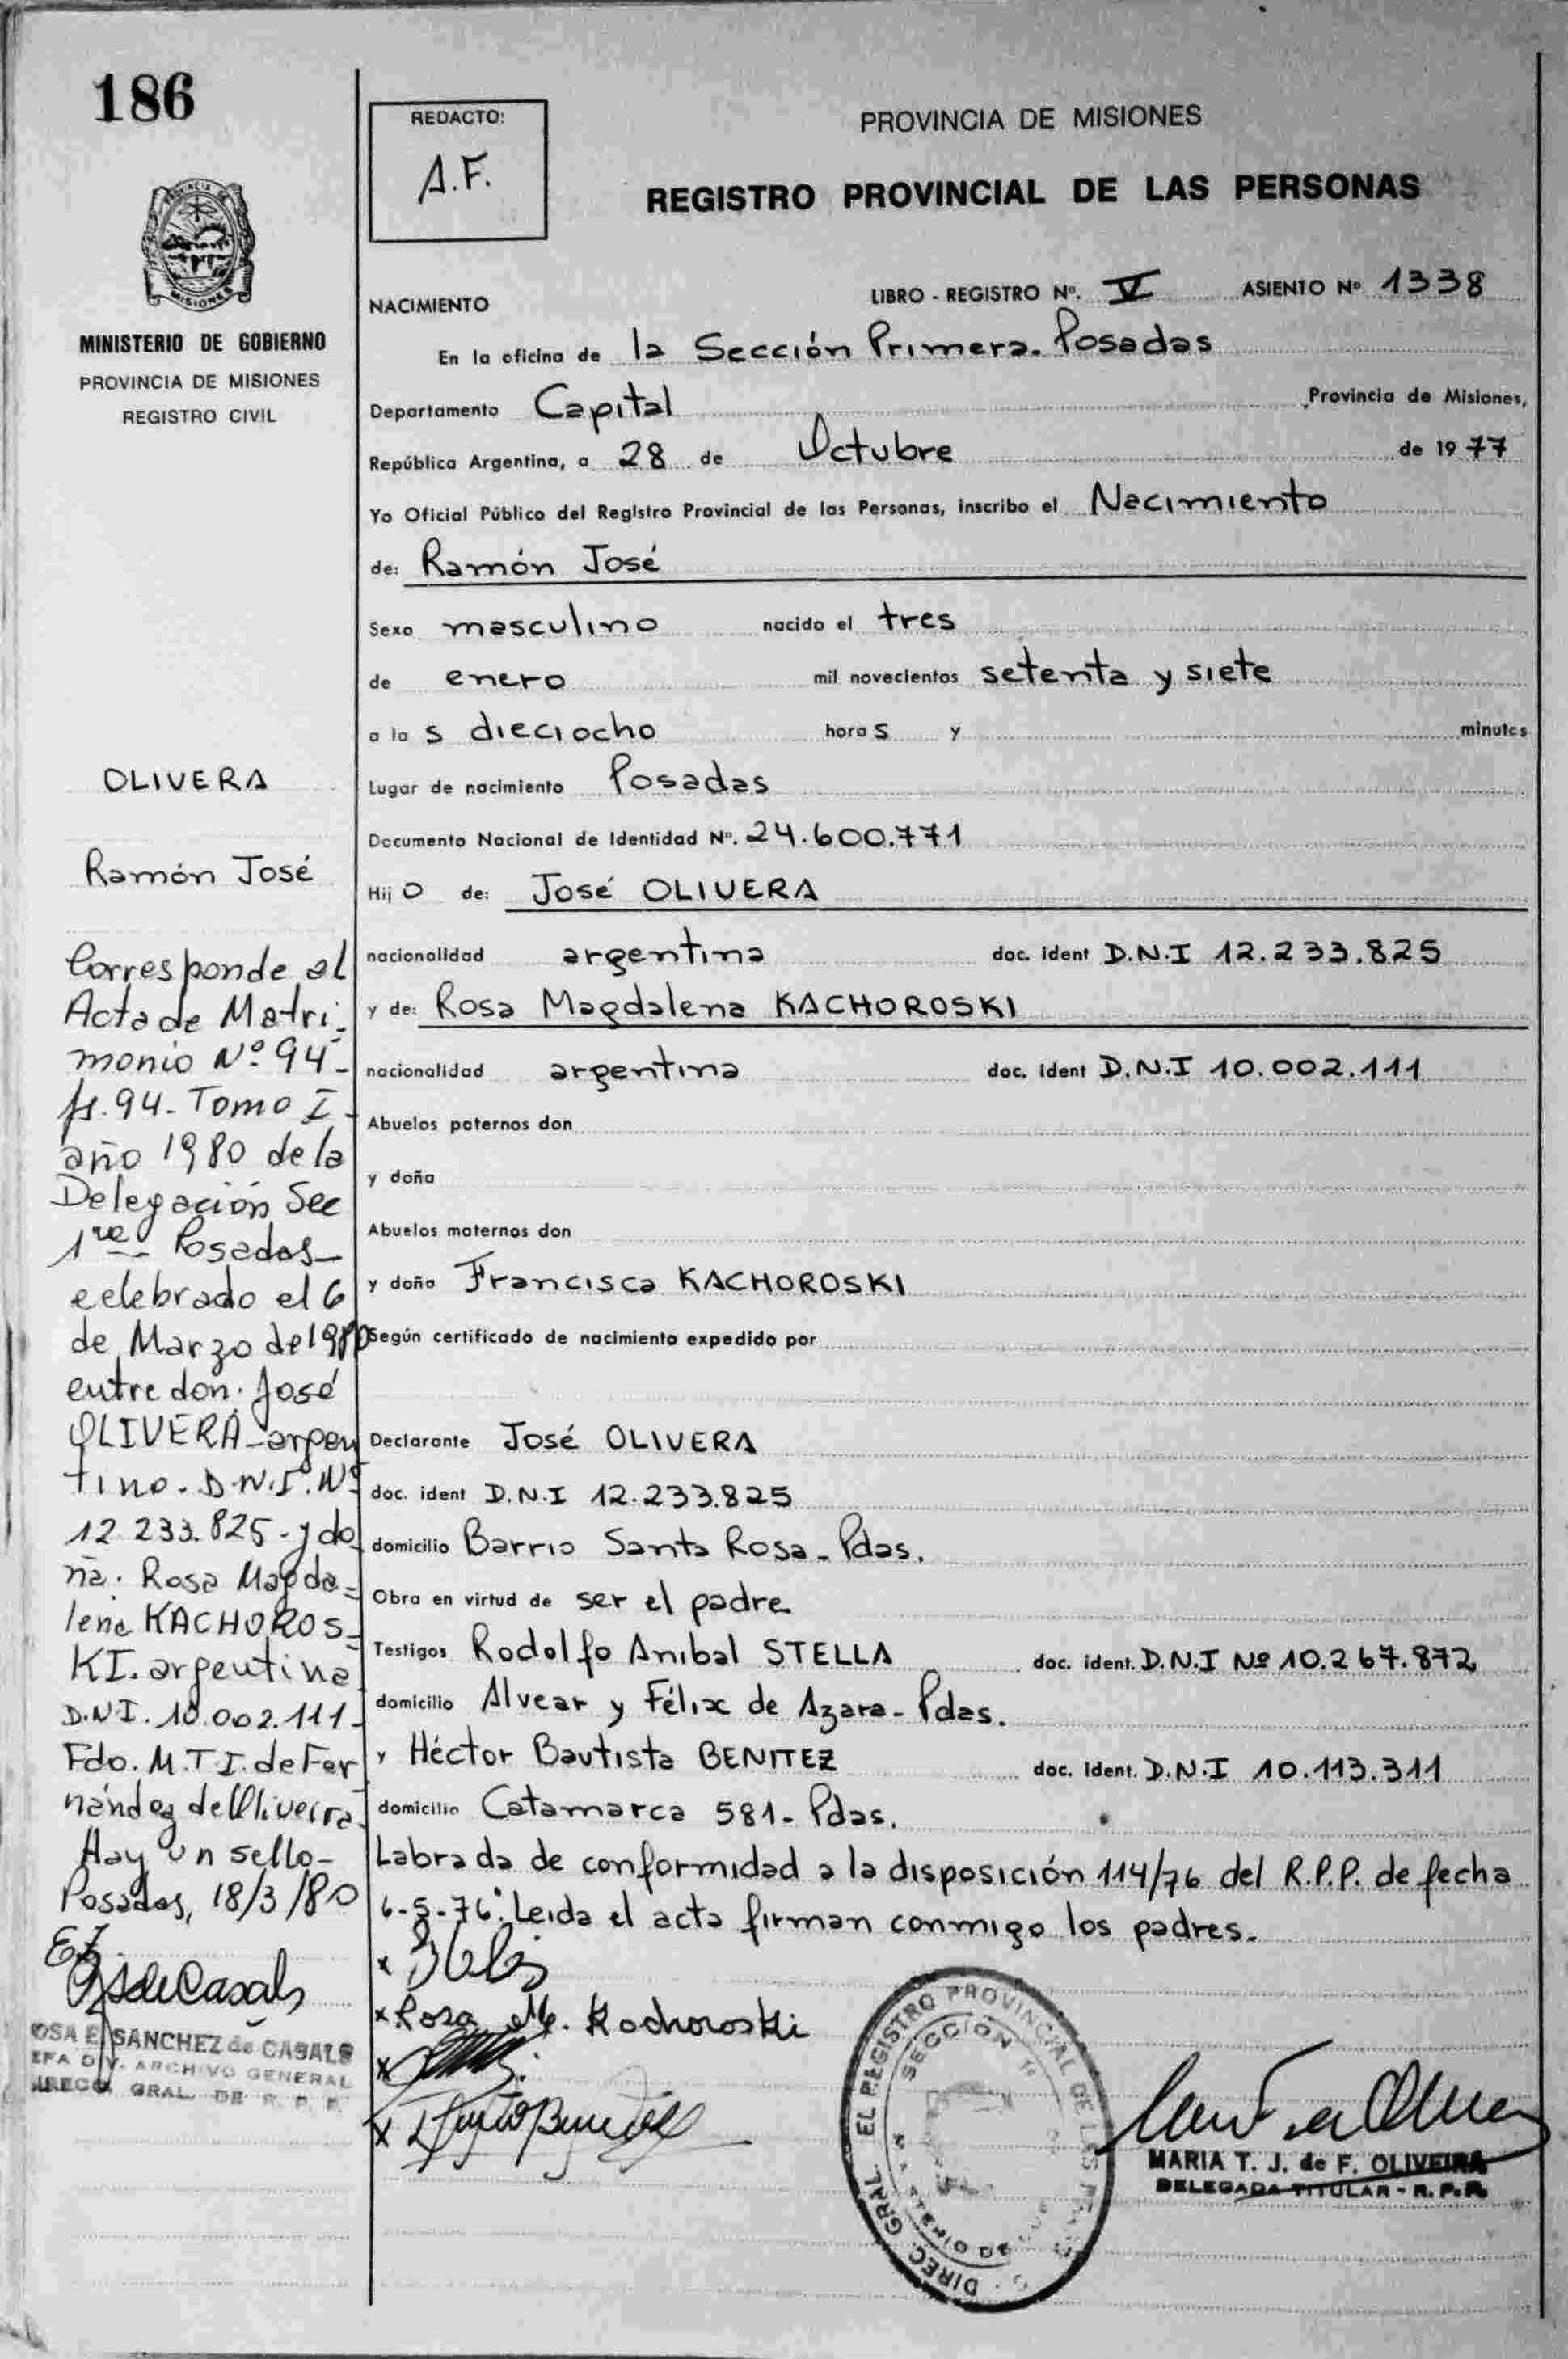 186
MINISTERIO DE GOBIERNO
PROVINCIA DE MISIONES
REGISTRO CIVIL
OLIVERA
Ramón José
Corresponde al
Acta de Matri-
monio Nº 94-
fs. 94- Tomo I-
año 1980 de la
Delegación Sec
1ra- Posadas-
celebrado el 6
de Marzo de 1980
entre don: José
OLIVERA-argen
tino. D.N.I. Nº
12.233.825-y do
ña: Rosa Magda-
lena KACHOROS-
KI. argentina
D.N.I. 10.002.111-
Fdo. M.T.I. de Fer
nández de Oliveira.
Hay un sello-
Posadas, 18/3/80
OSA E. SANCHEZ de CASALS
EFA DIV. ARCHIVO GENERAL
DIRECC. GRAL. DE R. P. P.
REDACTO:
A.F.
PROVINCIA DE MISIONES
REGISTRO PROVINCIAL DE LAS PERSONAS
NACIMIENTO LIBRO - REGISTRO Nº. V ASIENTO Nº 1338
En la oficina de la Sección Primera. Posadas
Departamento Capital Provincia de Misiones,
República Argentina, a 28 de Octubre de 1977
Yo Oficial Público del Registro Provincial de las Personas, inscribo el Nacimiento
de: Ramón José
Sexo masculino nacido el tres
de enero mil novecientos setenta y siete
a la s dieciocho hora s y minutos
Lugar de nacimiento Posadas
Documento Nacional de Identidad Nº. 24.600.771
Hij o de: José OLIVERA
nacionalidad argentina doc. ident D.N.I 12.233.825
y de: Rosa Magdalena KACHOROSKI
nacionalidad argentina doc. ident D.N.I 10.002.111
Abuelos paternos don
y doña
Abuelos maternos don
y doña Francisca KACHOROSKI
Según certificado de nacimiento expedido por
Declarante José OLIVERA
doc. ident D.N.I 12.233.825
domicilio Barrio Santa Rosa - Pdas.
Obra en virtud de ser el padre
Testigos Rodolfo Anibal STELLA doc. ident. D.N.I Nº 10.267.872
domicilio Alvear y Félix de Azara - Pdas.
y Héctor Bautista BENITEZ doc. ident. D.N.I 10.113.311
domicilio Catamarca 581 - Pdas.
Labrada de conformidad a la disposición 114/76 del R.P.P. de fecha
6-5-76". Leida el acta firman conmigo los padres.
x
x Rosa M. Kachoroski
x
x
DIREC. GRAL. EL REGISTRO PROVINCIAL DE LAS
SECCION 1ª
MARIA T. J. de F. OLIVEIRA
DELEGADA TITULAR - R. P. P.